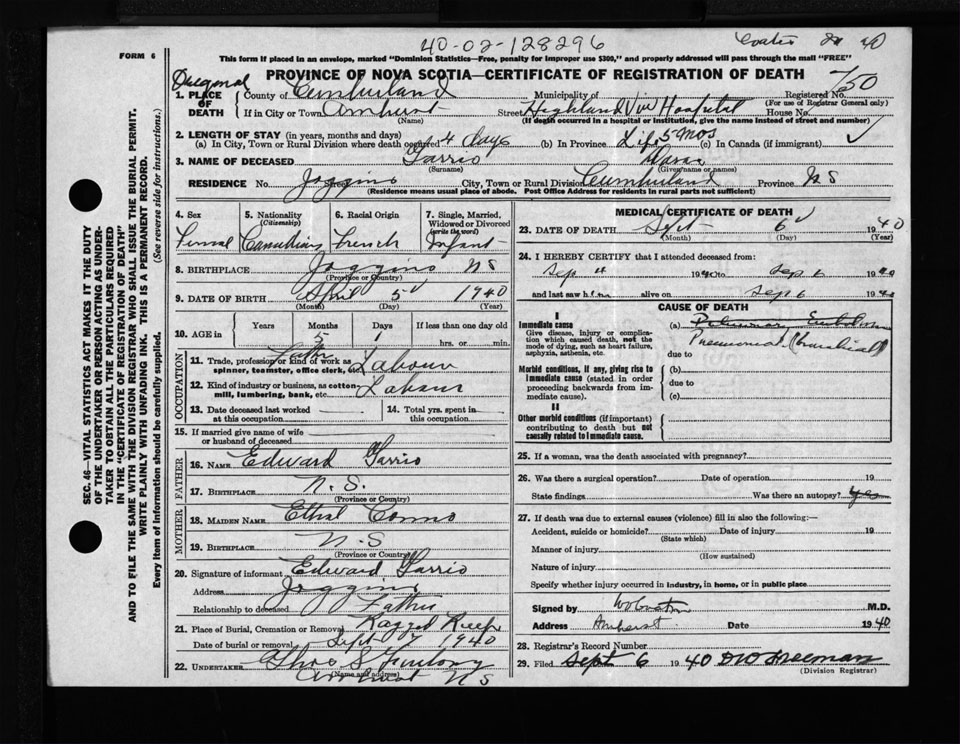 40-02-128296
FORM 6
This form if placed in an envelope, marked "Dominion Statistics—Free, penalty for improper use $300," and properly addressed will pass through the mail "FREE"
PROVINCE OF NOVA SCOTIA—CERTIFICATE OF REGISTRATION OF DEATH
1. PLACE OF DEATH County of Cumberland Municipality of Registered No. 750
(For use of Registrar General only)
If in City or Town Amherst Street Highland View Hospital House No.
(Name) (If death occurred in a hospital or institution, give the name instead of street and number)
2. LENGTH OF STAY (in years, months and days)
(a) In City, Town or Rural Division where death occurred 4 days (b) In Province Life 5 mos (c) In Canada (if immigrant)
3. NAME OF DECEASED
(Surname) (Given name or names)
RESIDENCE No. Joggins City, Town or Rural Division Cumberland Province NS
(Residence means usual place of abode. Post Office Address for residents in rural parts not sufficient)
4. Sex 5. Nationality (Citizenship) 6. Racial Origin 7. Single, Married, Widowed or Divorced (write the word)
Female Canadian French Infant
8. BIRTHPLACE Joggins NS
(Province or Country)
9. DATE OF BIRTH April 5 1940
(Month) (Day) (Year)
10. AGE in Years Months Days If less than one day old
5 1 hrs. or min.
OCCUPATION
11. Trade, profession or kind of work as spinner, teamster, office clerk, etc. Labour
12. Kind of industry or business, as cotton mill, lumbering, bank, etc.
13. Date deceased last worked at this occupation. 14. Total yrs. spent in this occupation.
15. If married give name of wife or husband of deceased
FATHER
16. NAME Edward
17. BIRTHPLACE N. S.
(Province or Country)
MOTHER
18. MAIDEN NAME Ethel
19. BIRTHPLACE N. S
(Province or Country)
20. Signature of informant Edward
Address Joggins
Relationship to deceased Father
21. Place of Burial, Cremation or Removal Ragged Reef
Date of burial or removal Sept 7 1940
22. UNDERTAKER
(Name and address)
Amherst NS
MEDICAL CERTIFICATE OF DEATH
23. DATE OF DEATH Sept 6 1940
(Month) (Day) (Year)
24. I HEREBY CERTIFY that I attended deceased from:
Sep 4 1940 to Sep 6 1940
and last saw h alive on Sep 6 1940
CAUSE OF DEATH
I
Immediate cause
Give disease, injury or complication which caused death, not the mode of dying, such as heart failure, asphyxia, asthenia, etc.
(a)
Pneumonia (bronchial)
due to
Morbid conditions, if any, giving rise to immediate cause (stated in order proceeding backwards from immediate cause).
(b)
due to
(c)
II
Other morbid conditions (if important) contributing to death but not causally related to immediate cause.
25. If a woman, was the death associated with pregnancy?
26. Was there a surgical operation? Date of operation 19
State findings Was there an autopsy? Yes
27. If death was due to external causes (violence) fill in also the following:—
Accident, suicide or homicide? Date of injury 19
(State which)
Manner of injury
(How sustained)
Nature of injury
Specify whether injury occurred in industry, in home, or in public place
Signed by M.D.
Address Amherst Date 1940
28. Registrar's Record Number
29. Filed Sept 6 1940
(Division Registrar)
SEC. 46—VITAL STATISTICS ACT MAKES IT THE DUTY
OF THE UNDERTAKER OR PERSON ACTING AS UNDER-
TAKER TO OBTAIN ALL THE PARTICULARS REQUIRED
IN THE "CERTIFICATE OF REGISTRATION OF DEATH"
AND TO FILE THE SAME WITH THE DIVISION REGISTRAR WHO SHALL ISSUE THE BURIAL PERMIT.
WRITE PLAINLY WITH UNFADING INK. THIS IS A PERMANENT RECORD.
Every item of information should be carefully supplied. (See reverse side for instructions.)